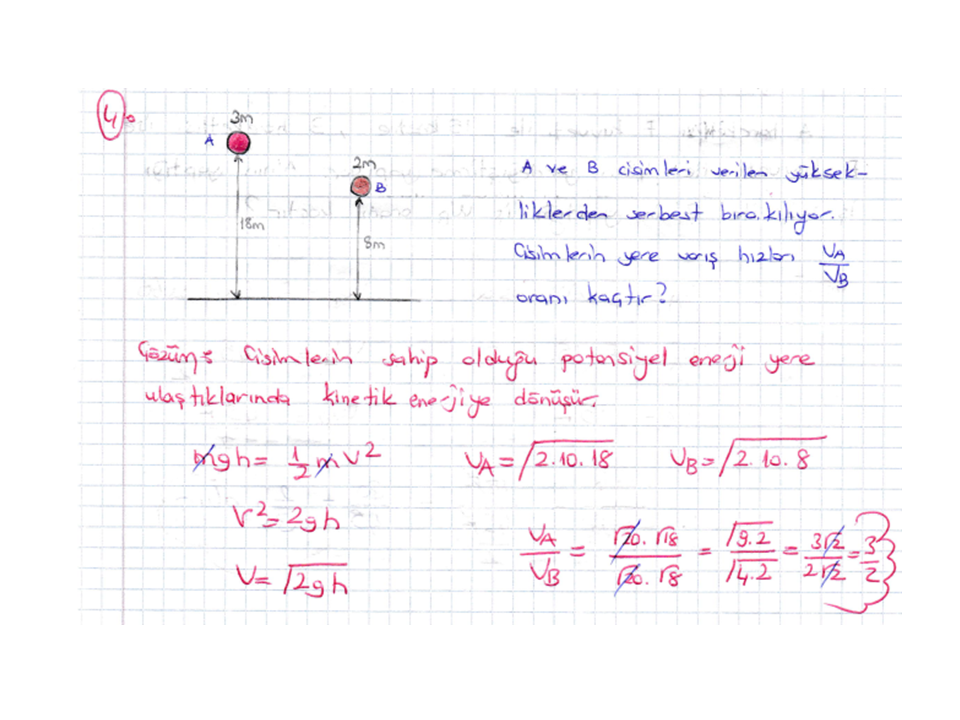 4.
3m
A
2m
B
18m
8m
A ve B cisimleri verilen yüksek-
liklerden serbest bırakılıyor.
Cisimlerin yere varış hızları VA/VB
oranı kaçtır?
Çözüm: Cisimlerin sahip olduğu potansiyel enerji yere
ulaştıklarında kinetik enerjiye dönüşür.
mgh = 1/2 mv²
VA = √2.10.18
VB = √2.10.8
V² = 2gh
V = √2gh
VA/VB = √20.√18/√20.√8 = √9.2/√4.2 = 3√2/2√2 = 3/2